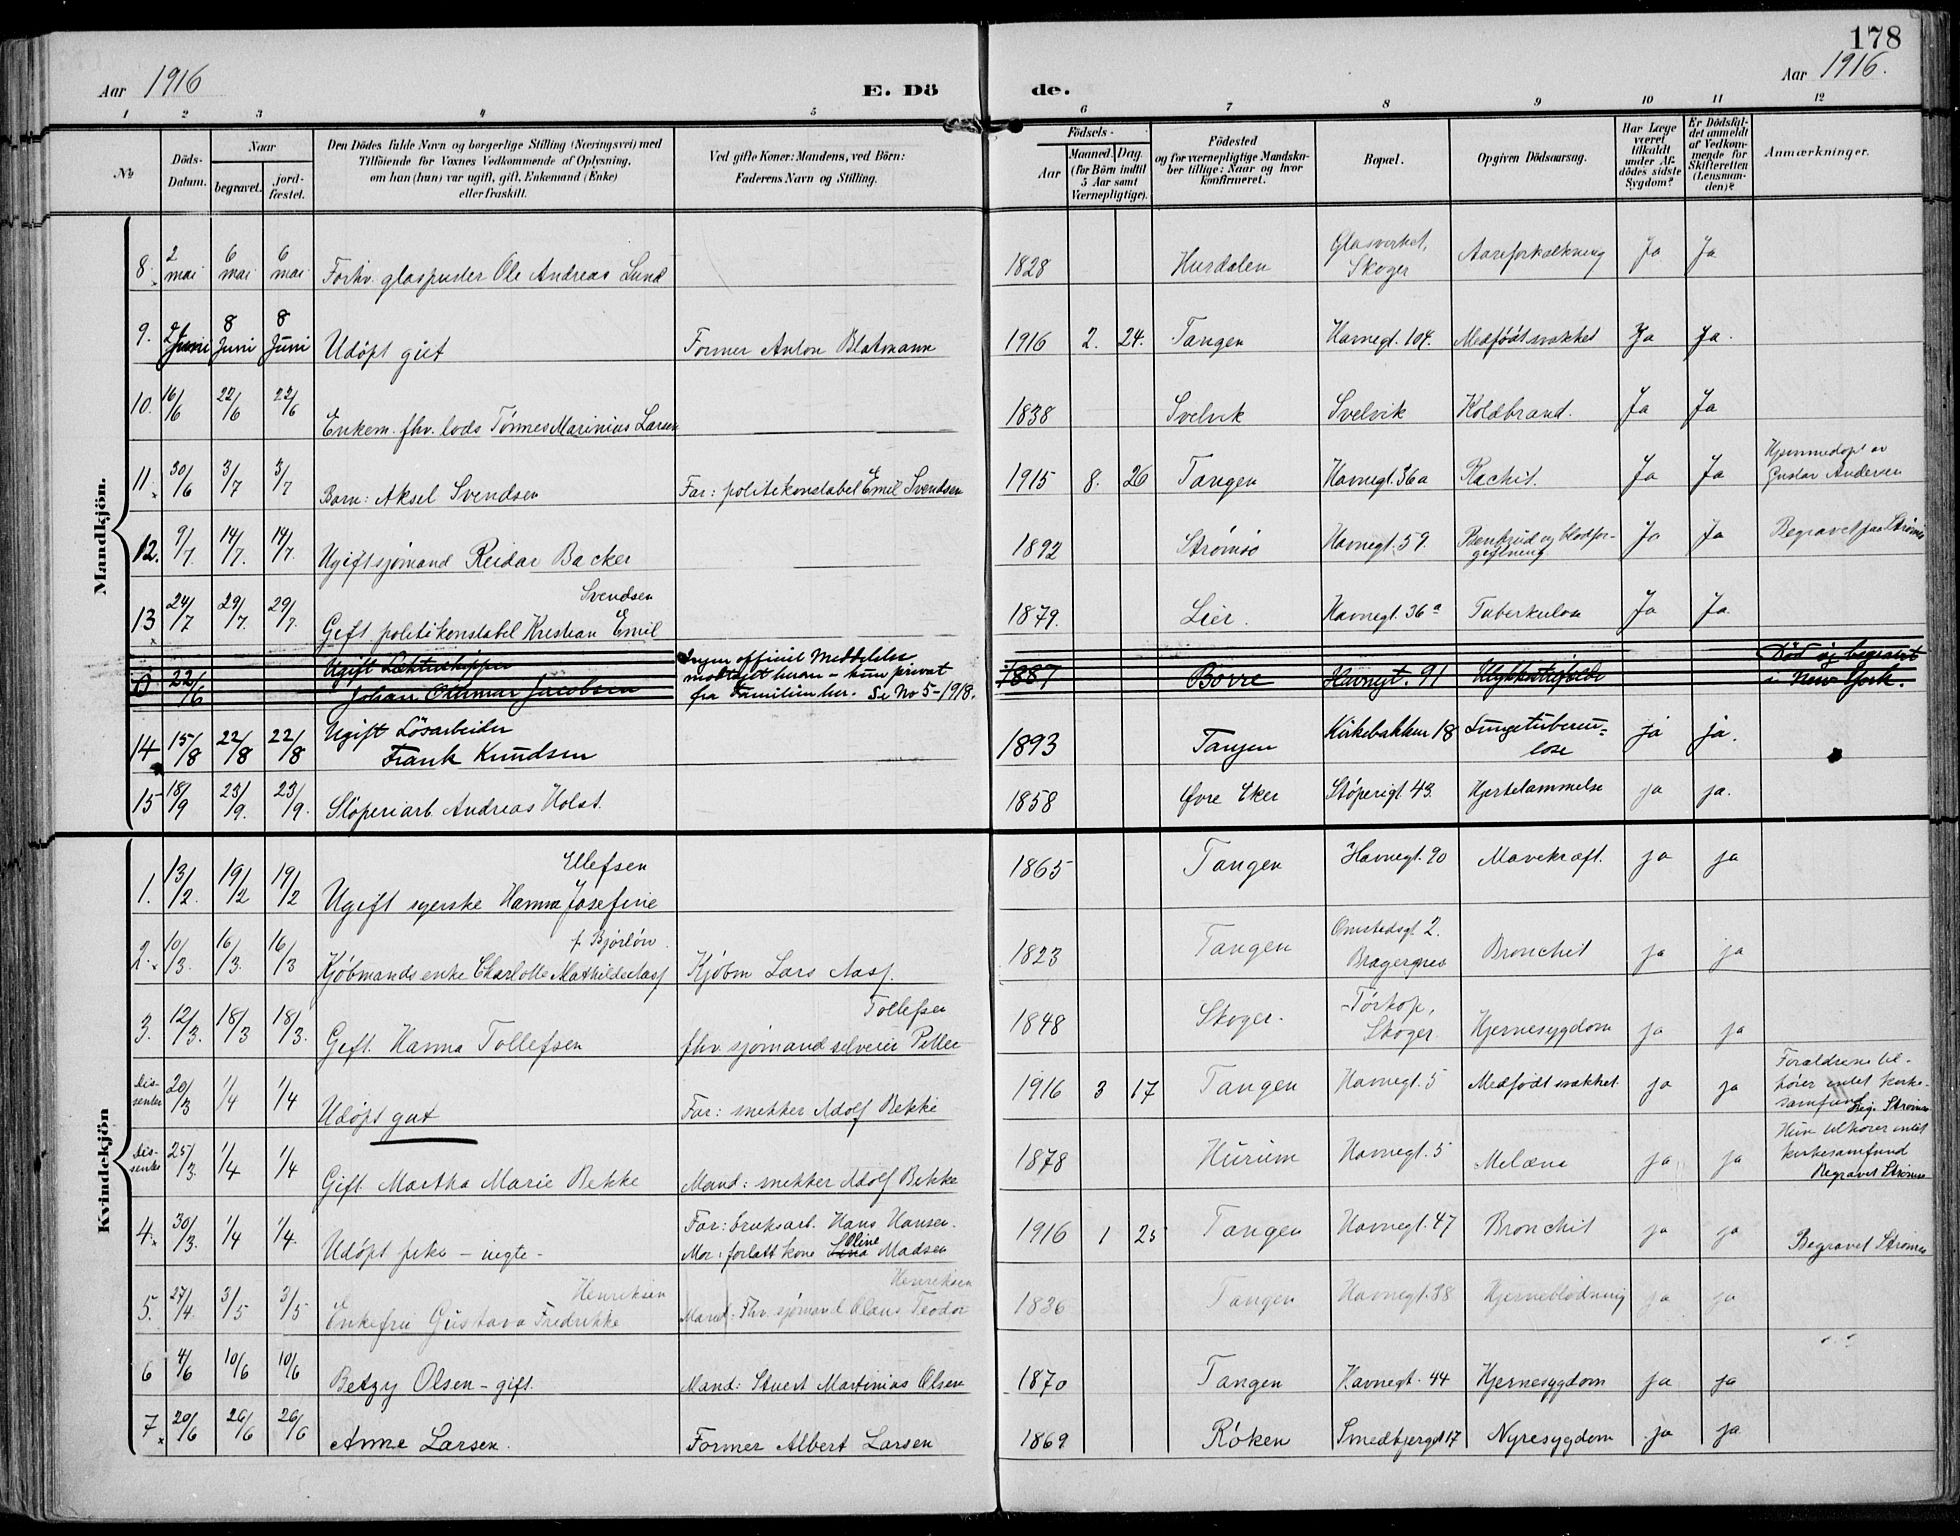 178
Aar 1916
E. Dö
de.
Aar 1916.
1 2 3 4 5 6 7 8 9 10 11 12
No
Döds-Datum.
Naar
begravet.
jord-fæstet.
Den Dödes fulde Navn og borgerlige Stilling (Næringsvei) med
Tilföiende för Voxnes Vedkommende af Oplysning,
om han (hun) var ugift, gift, Enkemand (Enke)
eller fraskilt.
Ved gifte Koner: Mandens, ved Börn:
Faderens Navn og Stilling.
Födsels-
Aar
Maaned. Dag.
(for Börn indtil
5 Aar samt
Værnepligtige).
Födested
og for værnepligtige Mandska-
ber tillige: Naar og hvor
konfirmeret.
Bopæl.
Opgiven Dödsaarsag.
Har Læge
været
tilkaldt
under Af-
dödes sidste
Sygdom?
Er Dödsfal-
det anmeldt
af Vedkom-
mende for
Skifteretten
(Lensman-
den)?
Anmærkninger.
Mandkjön.
8. 2 mai 6 mai 6 mai Forhv. glaspuster Ole Andreas Lund 1828 Hurdalen Glasverket, Skoger Aareforkalkning Ja Ja
9. 2 Juni 8 Juni 8 Juni Udöpt gut Former Anton Blatmann 1916 2. 24. Tangen Havnegt. 104. Medfödt svakhet Ja Ja.
10. 16/6 22/6 22/6 Enkem. fhv. lods Tönnes Marinius Larsen 1838 Svelvik Svelvik Koldbrand. Ja Ja
11. 30/6 3/7 3/7 Barn: Aksel Svendsen Far: politikonstabel Emil Svendsen 1915 8. 26 Tangen Havnegt. 36a Rachit. Ja Ja Hjemmedöpt av Gustav Andersen
12. 9/7. 14/7. 14/7. Ugift sjömand Reidar Backer 1892 Strömsö Havnegt. 59. Benbrud og blodfor-giftning Ja Ja Begravet paa Strömsö
13 24/7 29/7. 29/7. Gift politikonstabel Kristian Emil Svendsen 1879. Lier. Havnegt. 36a Tuberkulose Ja Ja.
22/6 Ugift Lekterskipper Johan Ottomar Jacobsen Ingen officiel Meddelelse modtaget herom - kun privat fra Familien her. Se No 5-1918. 1887 Borre Havnegt. 91 Ulykkestilfælde Död og begravet i New York.
14 15/8 22/8 22/8 Ugift Lösarbeider Frank Knudsen 1893 Tangen Kirkebakken 18 Lungetuberku=lose ja ja.
15 18/9 23/9. 23/9. Stöperiarb. Andreas Holst. 1858 Övre Eker Stöperigt. 43. Hjertelammelse ja ja.
Kvindekjön
1. 13/2. 19/2 19/2 Ugift syerske Hanna Josefine Ellefsen 1865 Tangen Havnegt. 90 Mavekræft. ja ja
2. 10/3. 16/3. 16/3 Kjöbmandsenke Charlotte Mathilde Aass f. Björlöv. Kjöbm Lars Aass. 1823 Tangen Omstedsgt 2. Bragernes Bronchit ja ja
3. 12/3. 18/3 18/3. Gift. Hanna Tollefsen fhv. sjömand selveier Petter Tollefsen 1848 Skoger. Törkop, Skoger. Hjernesygdom ja ja
Dis-senter 20/3 1/4 1/4 Udöpt gut Far: snekker Adolf Bekke 1916 3 17 Tangen Havnegt. 5 Medfödt svakhet. ja ja Forældrene til-hörer intet kirke-samfund Begr. Strömsö
Dis-senter 25/3. 1/4 1/4 Gift. Martha Marie Bekke Mand: snekker Adolf Bekke 1878 Hurum Havnegt. 5 Melæna ja ja Hun tilhörer intet kirkesamfund Begravet Strömsö
4. 30/3. 1/4 1/4. Udöpt pike - uegte - Far: bruksarb. Hans Hansen. Mor: forlatt kone Lina Oline Madsen 1916 1 25 Tangen Havnegt. 47 Bronchit ja ja Begravet Strömsö
5. 27/4. 3/5 3/5 Enkefru Gustava Fredrikke Henriksen Mand: Fhv. sjömand Olaus Teodor Henriksen 1836 Tangen Havnegt. 38 Hjerneblödning ja ja
6 4/6 10/6 10/6 Betzy Olsen - gift. Mand: Stuert Martinius Olsen 1870 Tangen Havnegt. 44 Hjernesygdom ja ja
7 20/6 26/6 26/6 Anne Larsen. Former Albert Larsen 1869 Röken Smedbjergt 17 Nyresygdom ja ja